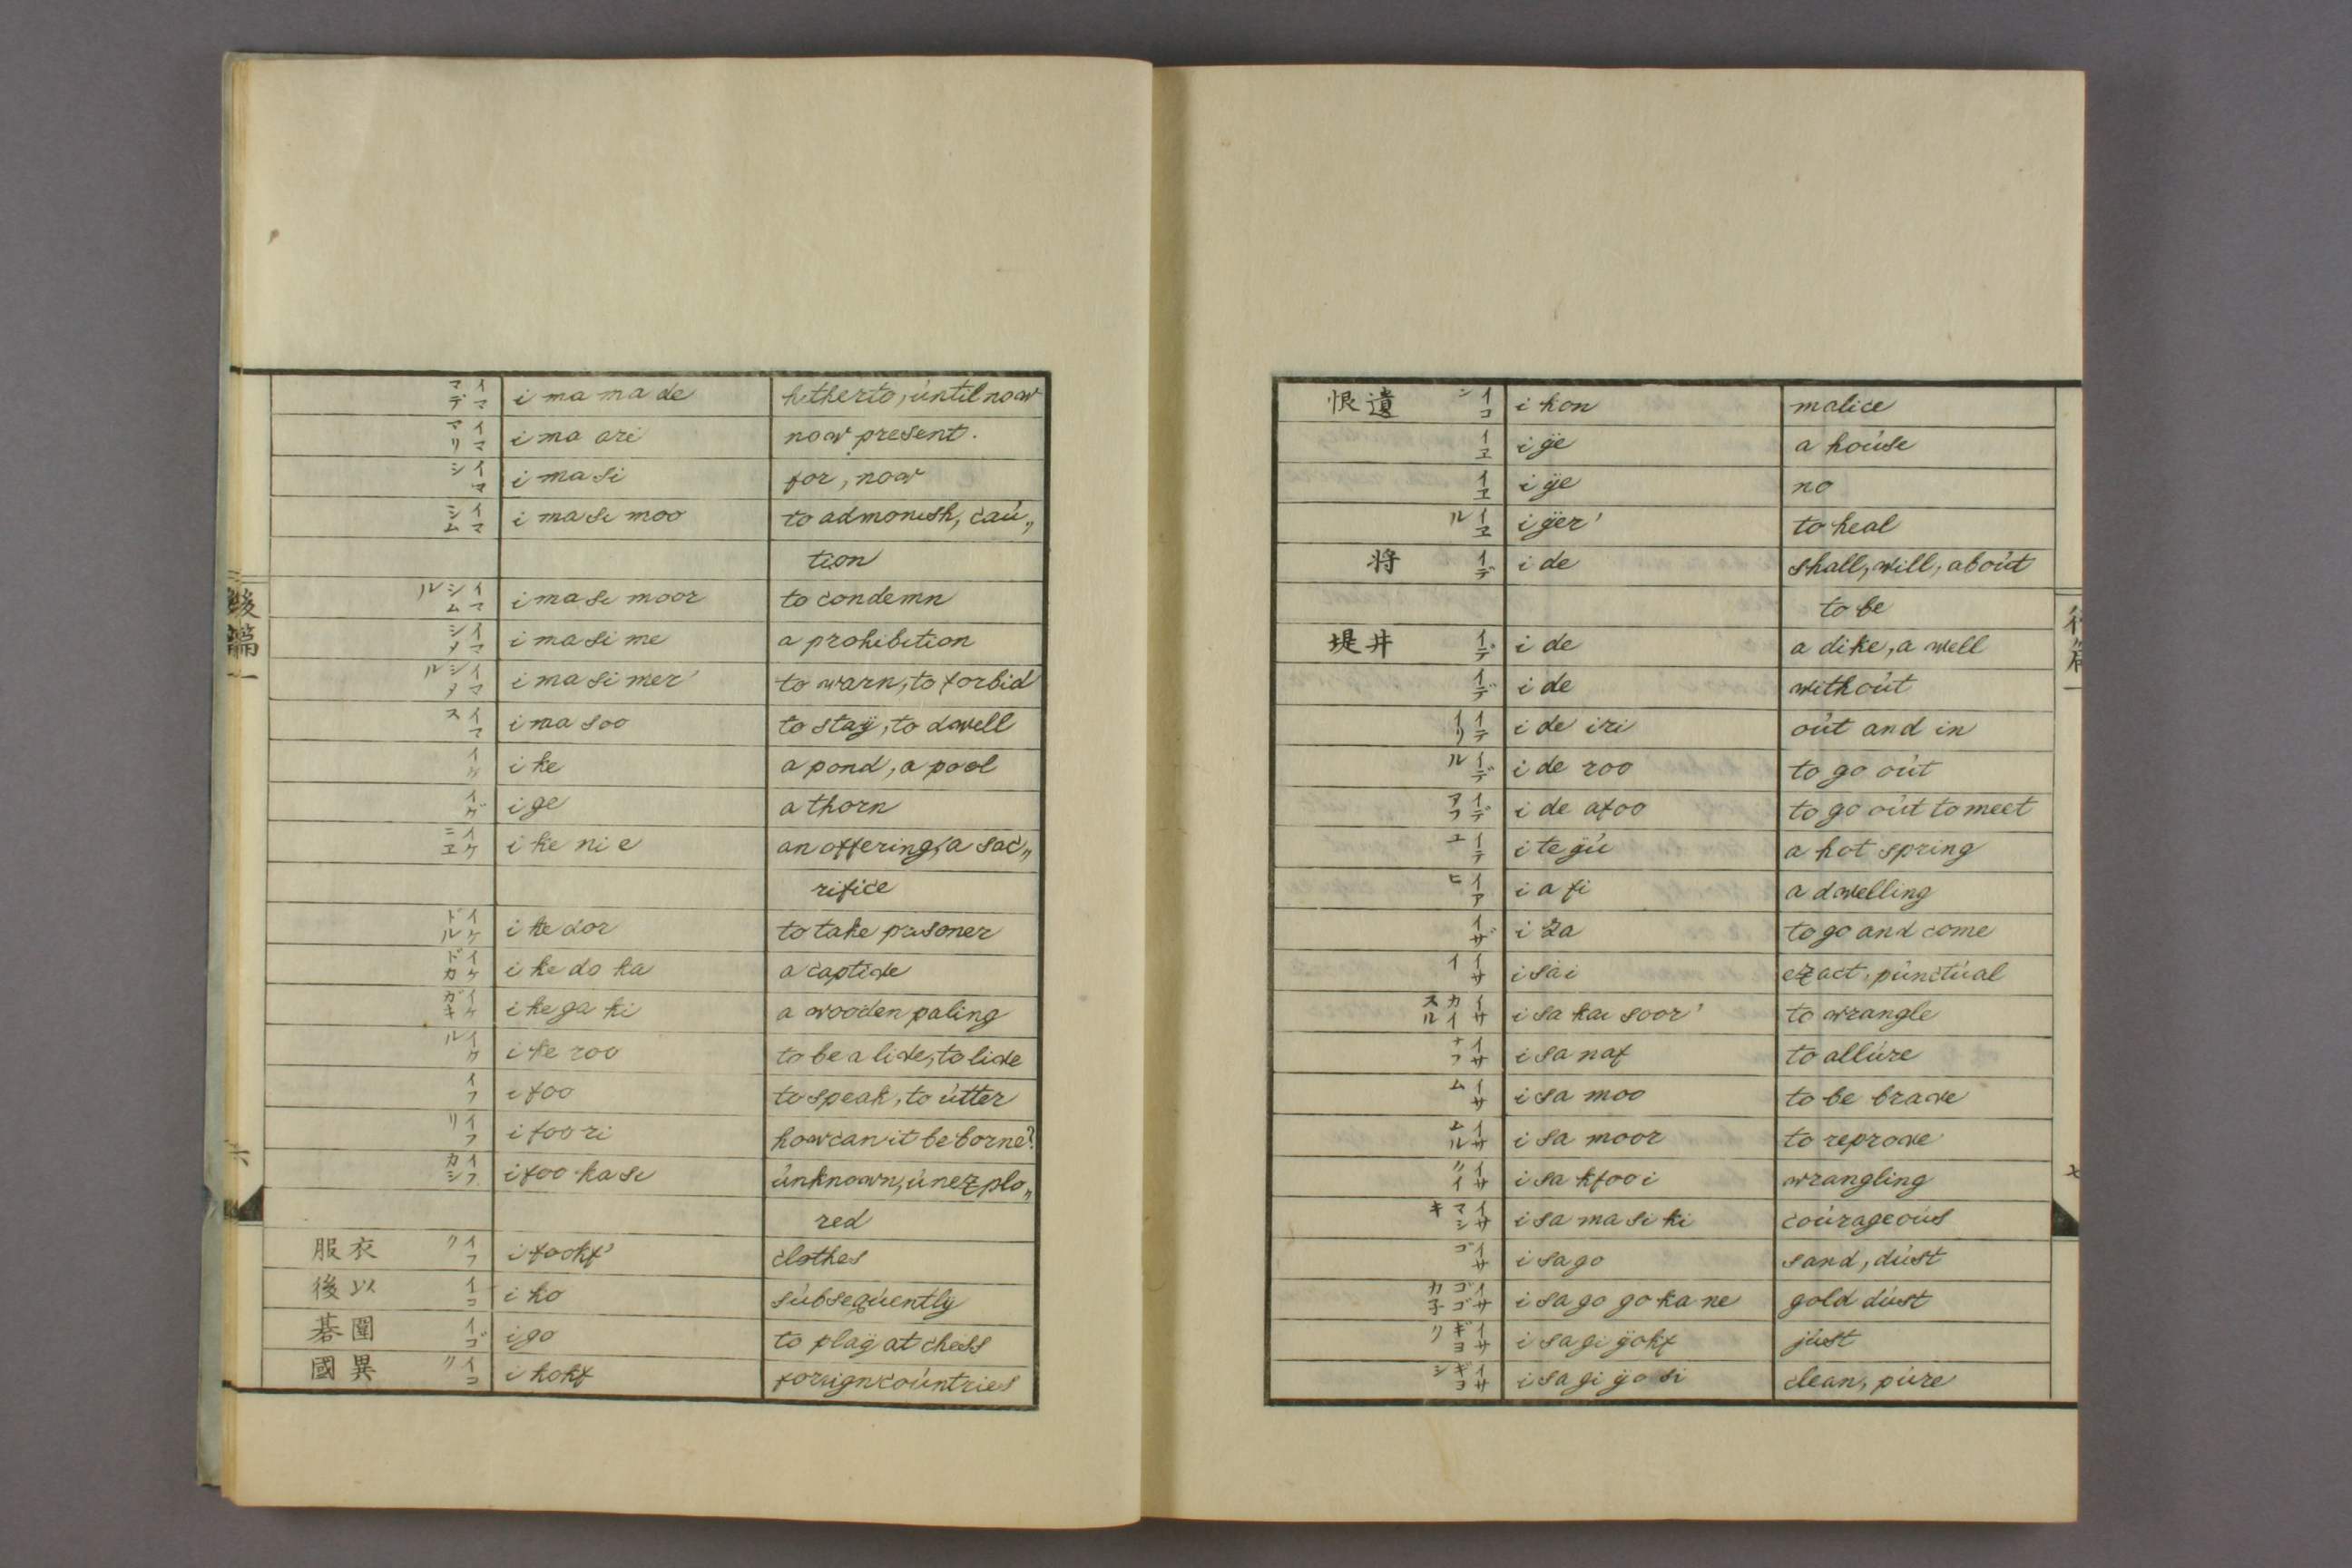 イママデ i ma ma de hitherto, úntil now
イママリ i ma ari now present.
イマシ i ma si for, now
イマシム i ma si moo to admonish, caú„
tion
イマシムル i ma si moor to condemn
イマシメ i ma si me a prohibition
イマシメル i ma si mer' to warn, to forbid
イマス i ma soo to staÿ, to dwell
イケ i ke a pond, a pool
イゲ i ge a thorn
イケニヱ i ke ni e an offering, a sac„
rifice
イケドル i ke dor to take prisoner
イケドカ i ke do ka a captive
イケガキ i ke ga ki a wooden paling
イケル i ke roo to be alive, to live
イフ i foo to speak, to útter
イフリ i foo ri how can it be borne?
イフカシ i foo ka si únknown, únexplo„
red
服衣 イフク i fookf' clothes
後以 イコ i ko súbseqúently
碁圍 イゴ i go to plaÿ at chess
國異 イコク i kokf foreign coúntries
後篇一
六
恨遺 イコン i kon malice
イヱ i ÿe a hoúse
イヱ i ÿe no
イヱル i ÿer' to heal
将 イデ i de shall, will, aboút
to be
堤井 イデ i de a dike, a well
イデ i de withoút
イテイリ i de iri oút and in
イデル i de roo to go oút
イデアフ i de afoo to go oút to meet
イテユ i te ÿú a hot spring
イアヒ i a fi a dwelling
イザ i za to go and come
イサイ i sa i exact, púnctúal
イサカイスル i sa kai soor' to wrangle
イサナフ i sa naf to allúre
イサム i sa moo to be brave
イサムル i sa moor to reprove
イサクイ i sa kfoo i wrangling
イサマシキ i sa ma si ki coúrageoús
イサゴ i sa go sand, dúst
イサゴゴカ子 i sa go go ka ne gold dúst
イサギヨク i sa gi ÿokf júst
イサギヨシ i sa gi ÿo si clean, púre
七